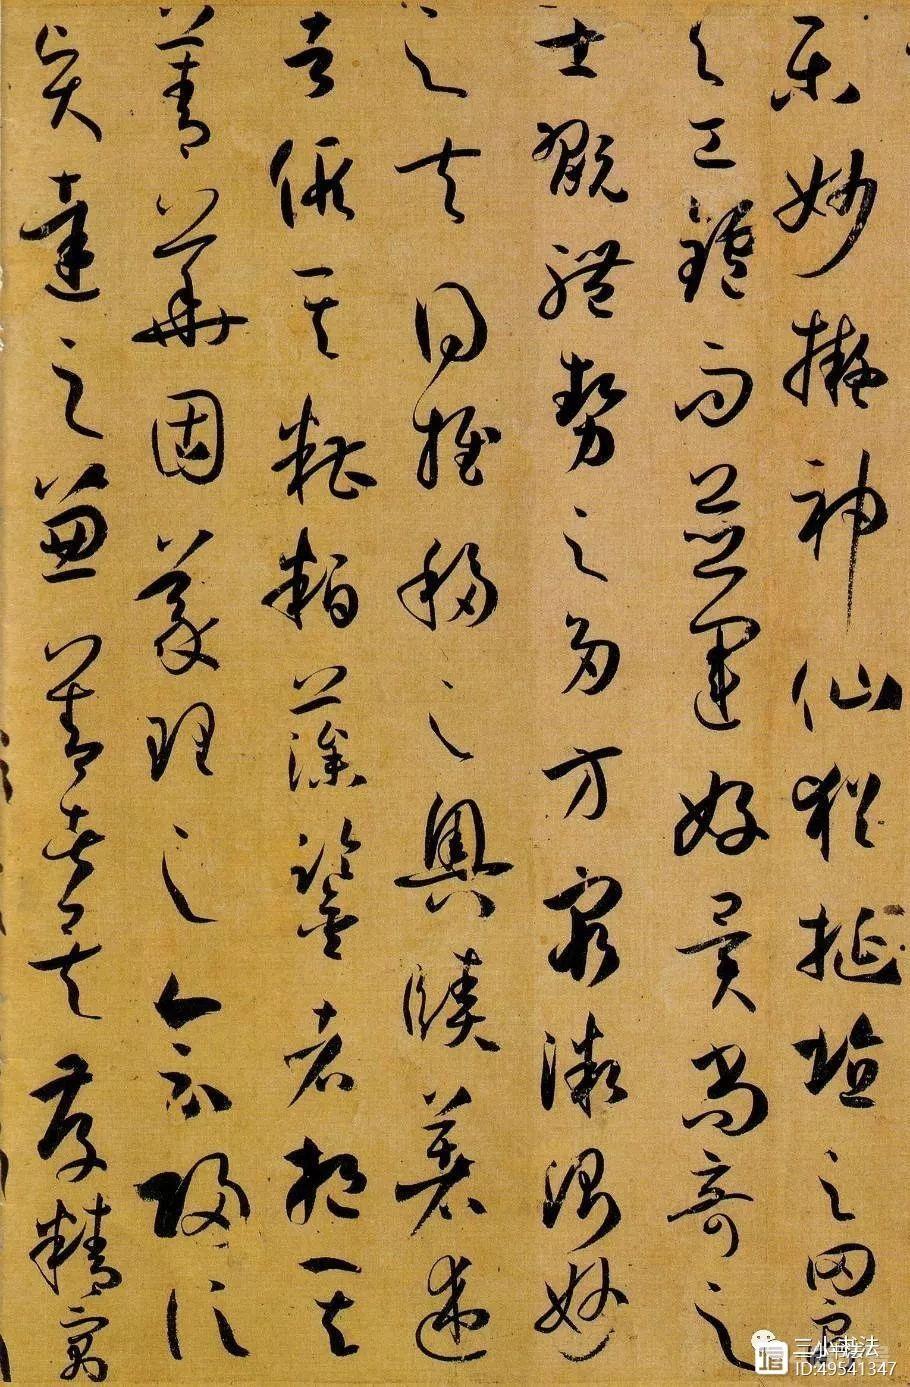 樂妙擬神仙猶埏埴之罔窮
與工鑪而並運好異尚奇之
士翫體勢之多方窮微測妙
之夫得推移之奧賾著述
者假其糟粕藻鑒者挹其
菁華固義理之會歸信
賢達之兼善者矣存精寓
三小书法
ID:49541347